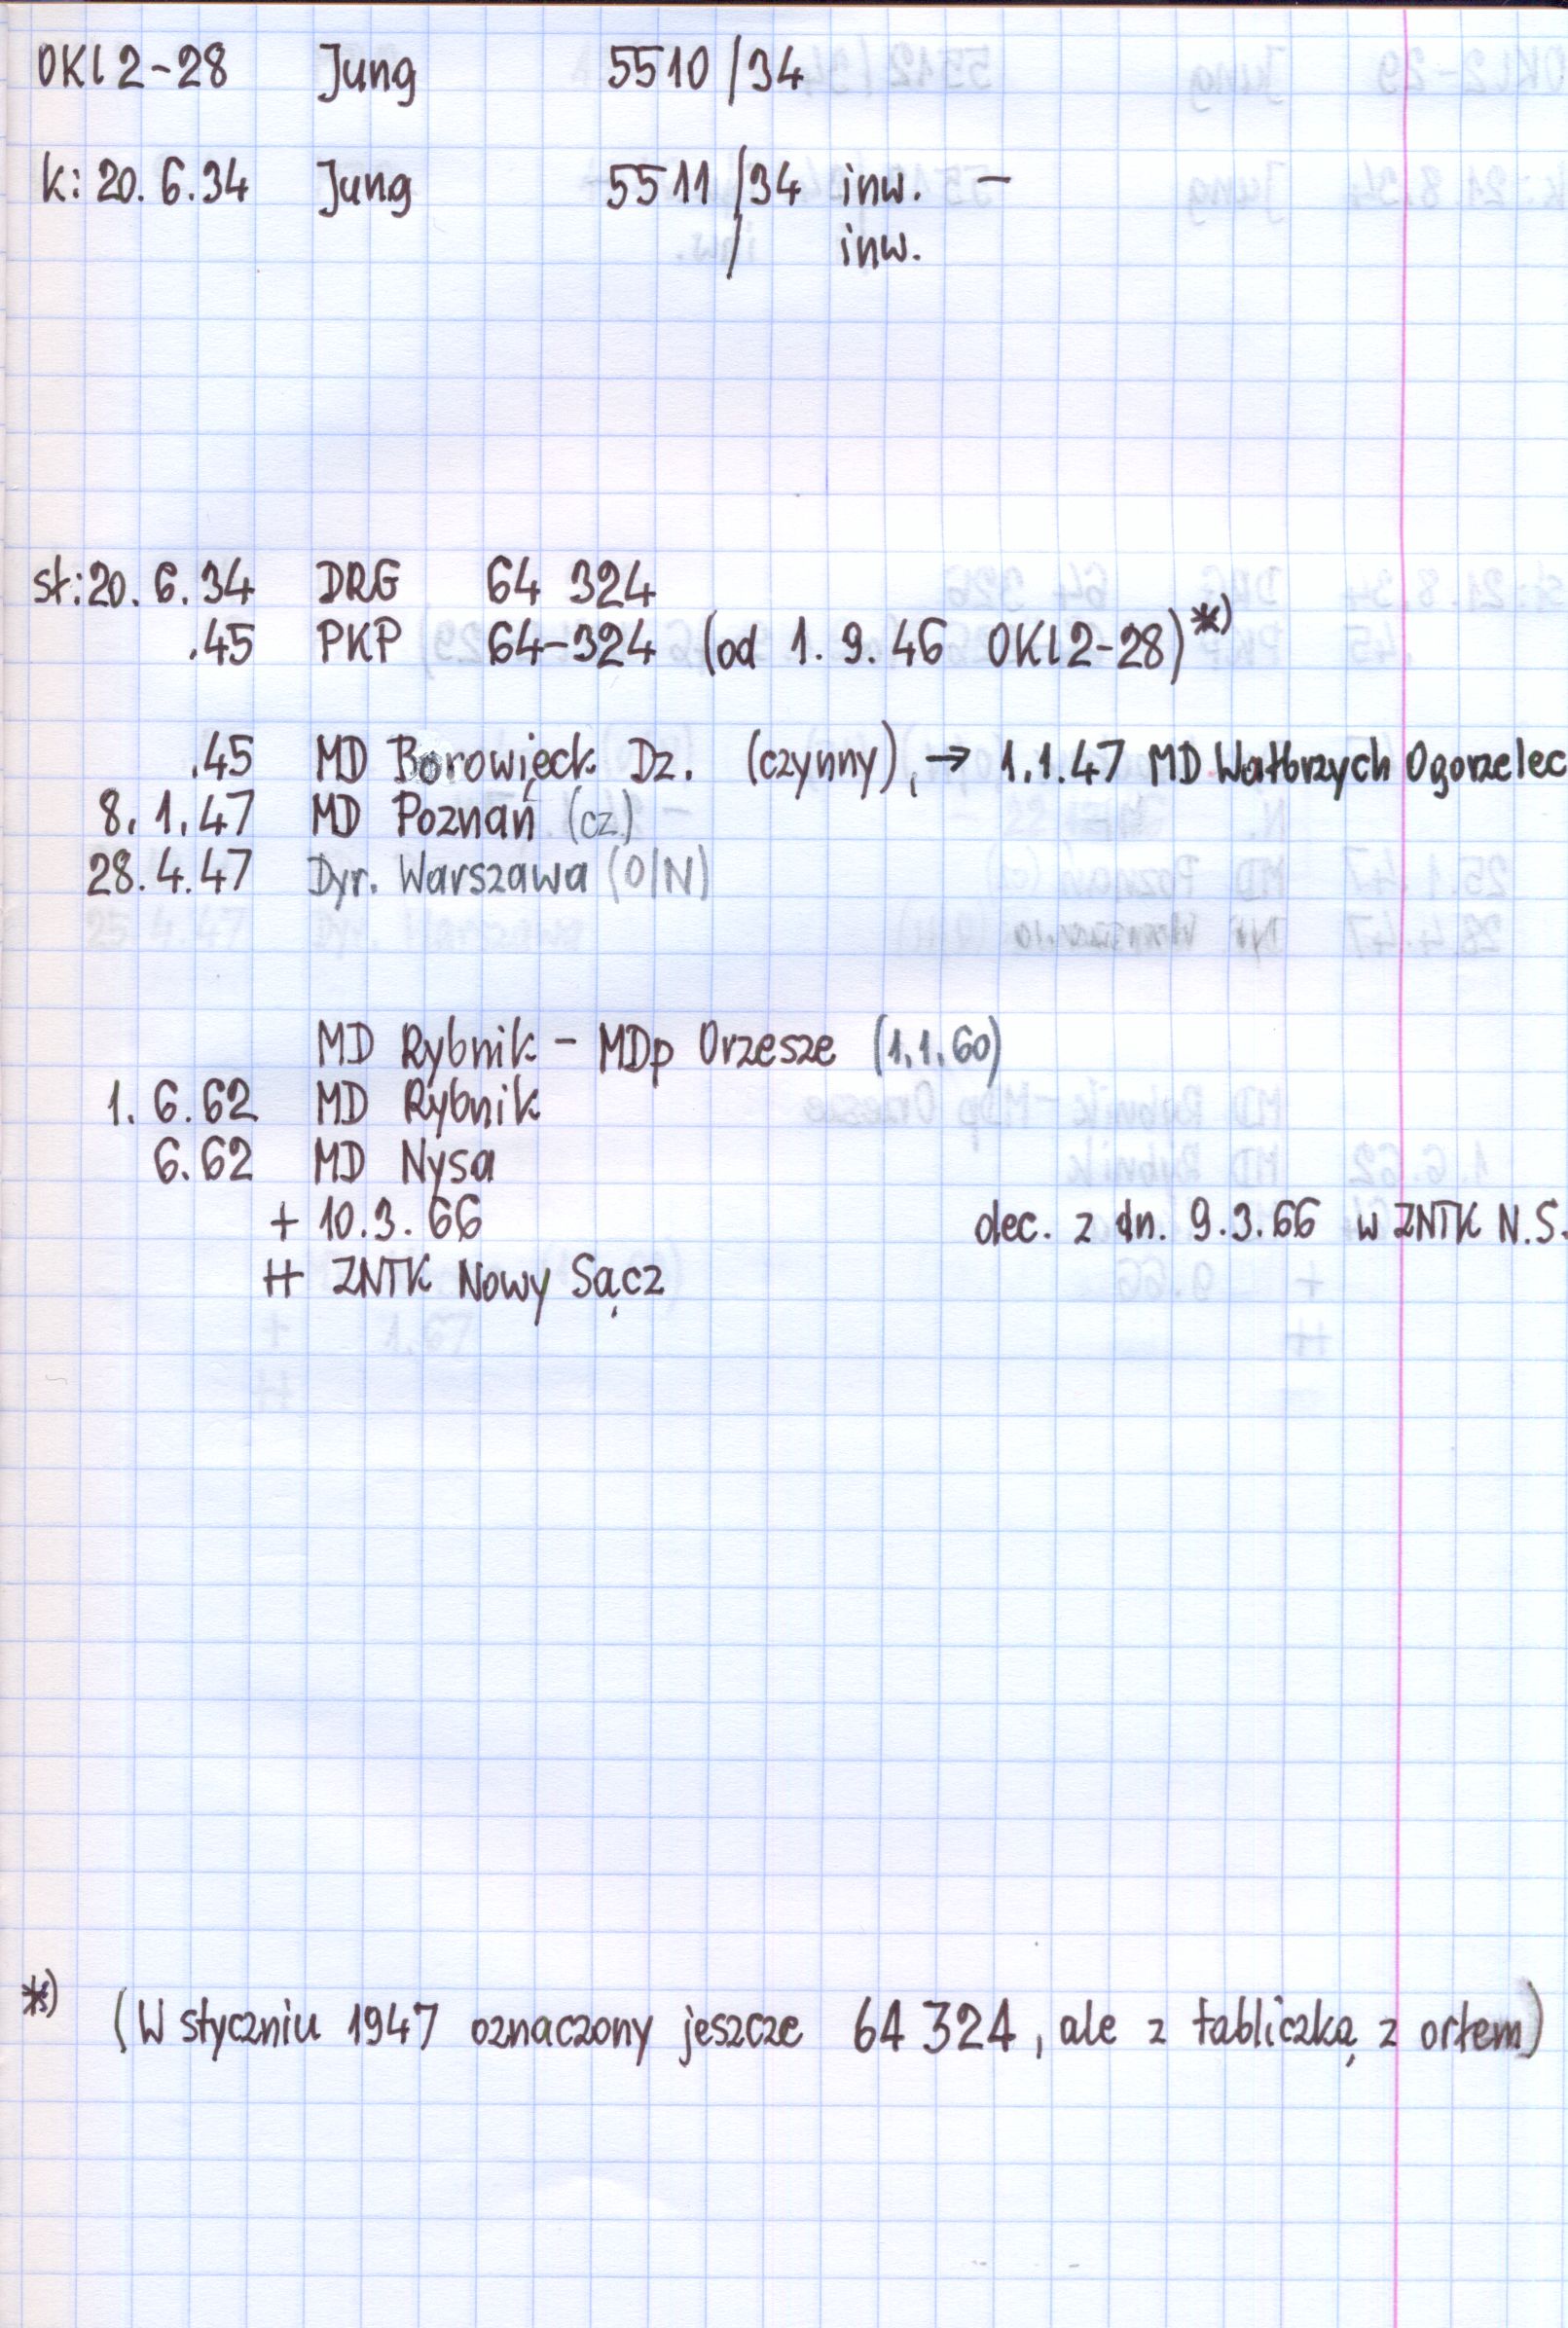 OKl2-28 Jung 5510/34
k: 20.6.34 Jung 5511/34 inw. –
/ inw.
sł: 20.6.34 DRG 64 324
.45 PKP 64-324 (od 1.9.46 OKl2-28)*)
.45 MD Borowięck Dz. (czynny), → 1.1.47 MD Wałbrzych Ogorzelec
8.1.47 MD Poznań (cz.)
28.4.47 Dyr. Warszawa (O/N)
MD Rybnik - MDp Orzesze (1.1.60)
1.6.62 MD Rybnik
6.62 MD Nysa
+ 10.3.66 dec. z dn. 9.3.66 w ZNTK N.S.
++ ZNTK Nowy Sącz
*) (W styczniu 1947 oznaczony jeszcze 64 324, ale z tabliczką z orłem)